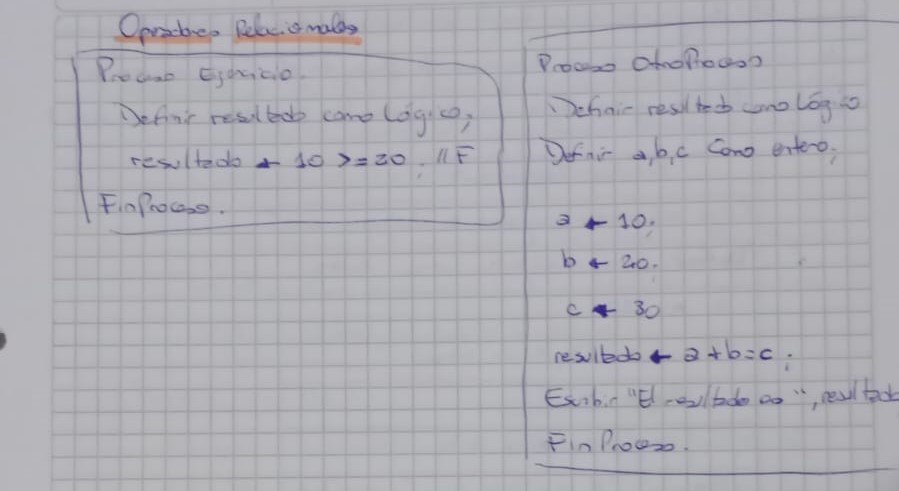 Operadores Relacionales
Proceso Ejercicio.
Definir resultado como Lógico;
resultado ← 10 >= 20; // F
FinProceso.
Proceso OtroProceso
Definir resultado como Lógico
Definir a,b,c Como entero;
a ← 10;
b ← 20.
c ← 30
resultado ← a+b=c;
Escribir "El resultado es", resultado
FinProceso.